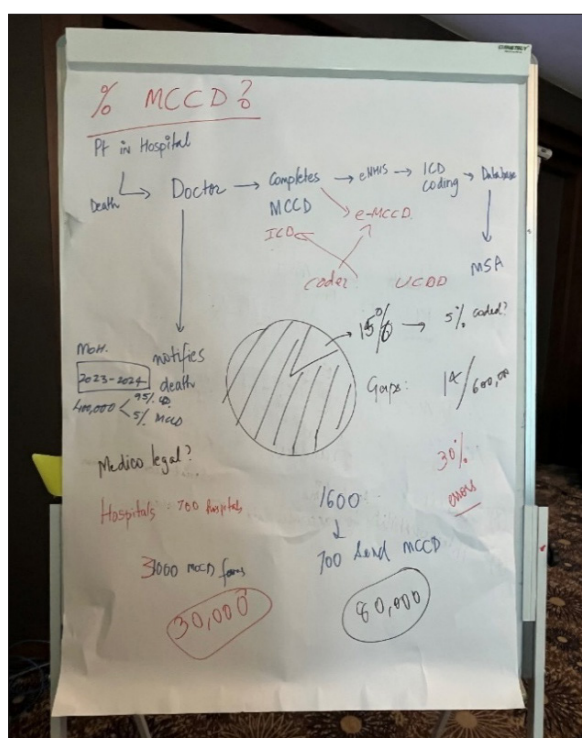 % MCCD?
Pt in Hospital
Death → Doctor → Completes MCCD → eNHIS → ICD coding → Database
e-MCCD
ICD
Coder UCOD
MSA
15% → 5% coded?
MOH.
2023-2024
notifies death
400,000 < 95%
5% MCCD
Gaps: 14/600,000
Medico legal?
30% errors
Hospitals: 700 hospitals
1600
↓
700 send MCCD
3000 MCCD forms
30,000?
80,000